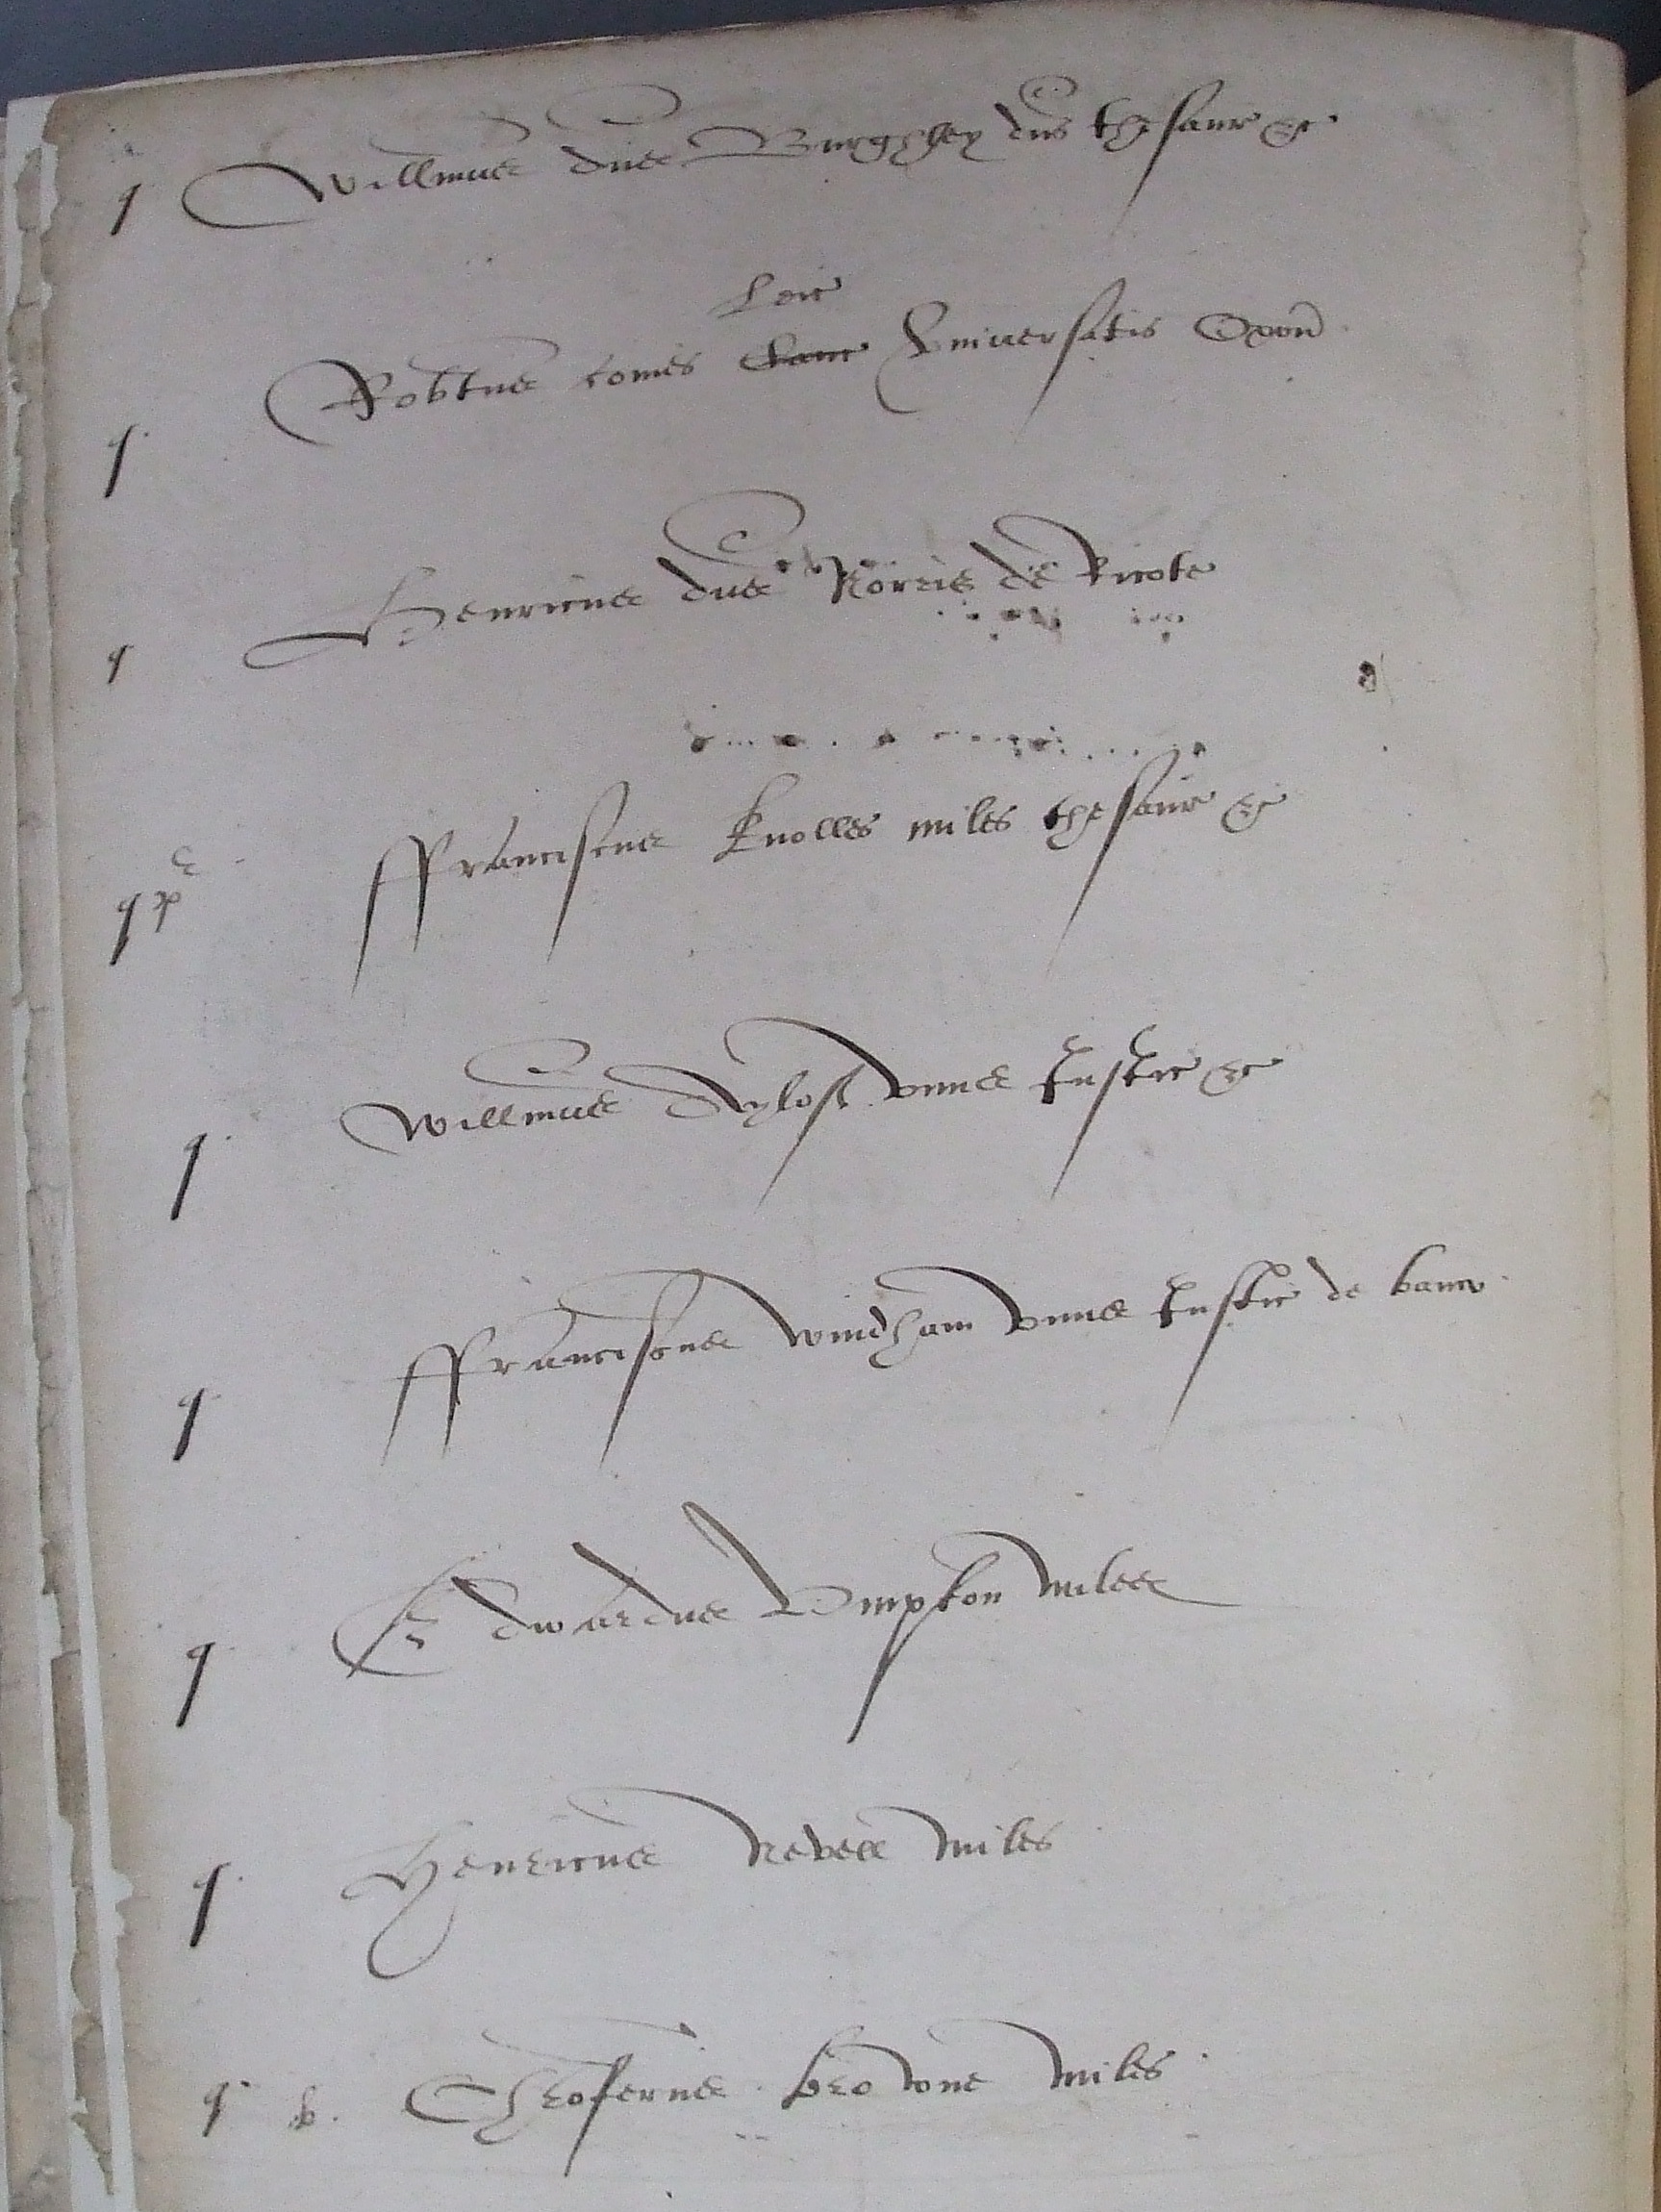 q Willmus dns Burghley dns thesaur &c
Leic
q Robtus comes Canc Universitatis Oxon
q Henricus dns Norris de Ricote
q p Franciscus Knolles miles thesaur &c
q Willmus Aylof unus Justic &c
q Franciscus Windham unus Justic de banco
q Edwardus Umpton miles
q Henricus Nevell miles
q b. Chroferus browne miles